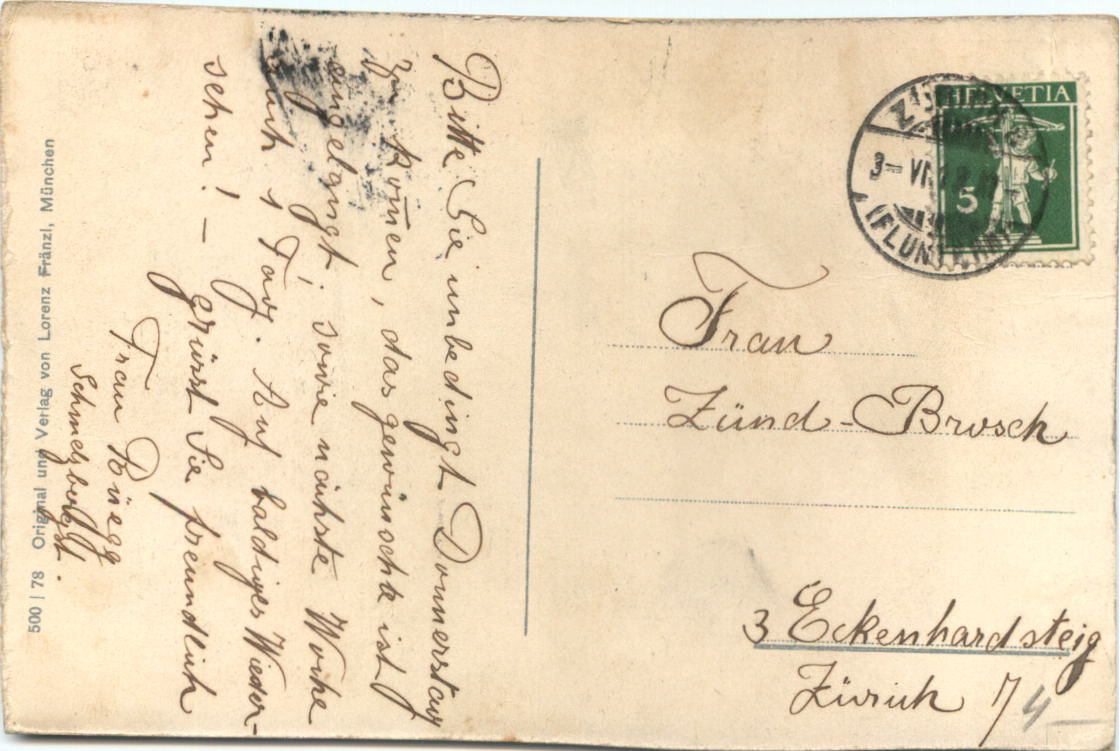 Bitte Sie unbedingt Donnerstag
zu kom̄en, das gewünschte ist
eingelangt; sowie nächste Woche
auch 1 Tag. Auf baldiges Wieder-
sehen! – grüsst Sie freundlich
Frau Rüegg
Schmelzbergst.
500 | 78 Original und Verlag von Lorenz Fränzl, München
HELVETIA
5
3- VI
(FLUNTERN)
Frau
Zünd-Brosch
3 Eckenhardsteig
Zürich 7
4